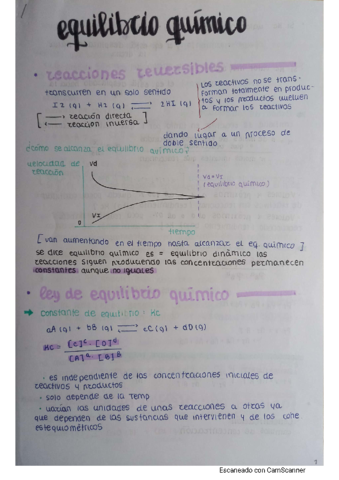 equilibrio químico
• reacciones reversibles
transcurren en un solo sentido
I2 (g) + H2 (g) ⇌ 2HI (g)
[ → reacción directa
← reacción inversa ]
los reactivos no se trans-
forman totalmente en produc-
tos y los productos vuelven
a formar los reactivos
dando lugar a un proceso de
doble sentido.
¿cómo se alcanza el equilibrio químico?
velocidad de
reacción
Vd
Vd = Vi
(equilibrio químico)
Vi
0
tiempo
[ van aumentando en el tiempo hasta alcanzar el eq. químico ]
se dice equilibrio químico es = equilibrio dinámico las
reacciones siguen produciendo las concentraciones permanecen
constantes aunque no iguales
• ley de equilibrio químico
→ constante de equilibrio: Kc
aA (g) + bB (g) ⇌ cC (g) + dD (g)
Kc = [C]ᶜ · [D]ᵈ
[A]ᵃ · [B]ᵇ
• es independiente de las concentraciones iniciales de
reactivos y productos
• solo depende de la temp
• varían las unidades de unas reacciones a otras ya
que dependen de las sustancias que intervienen y de los cohe
estequiométricos
1
Escaneado con CamScanner